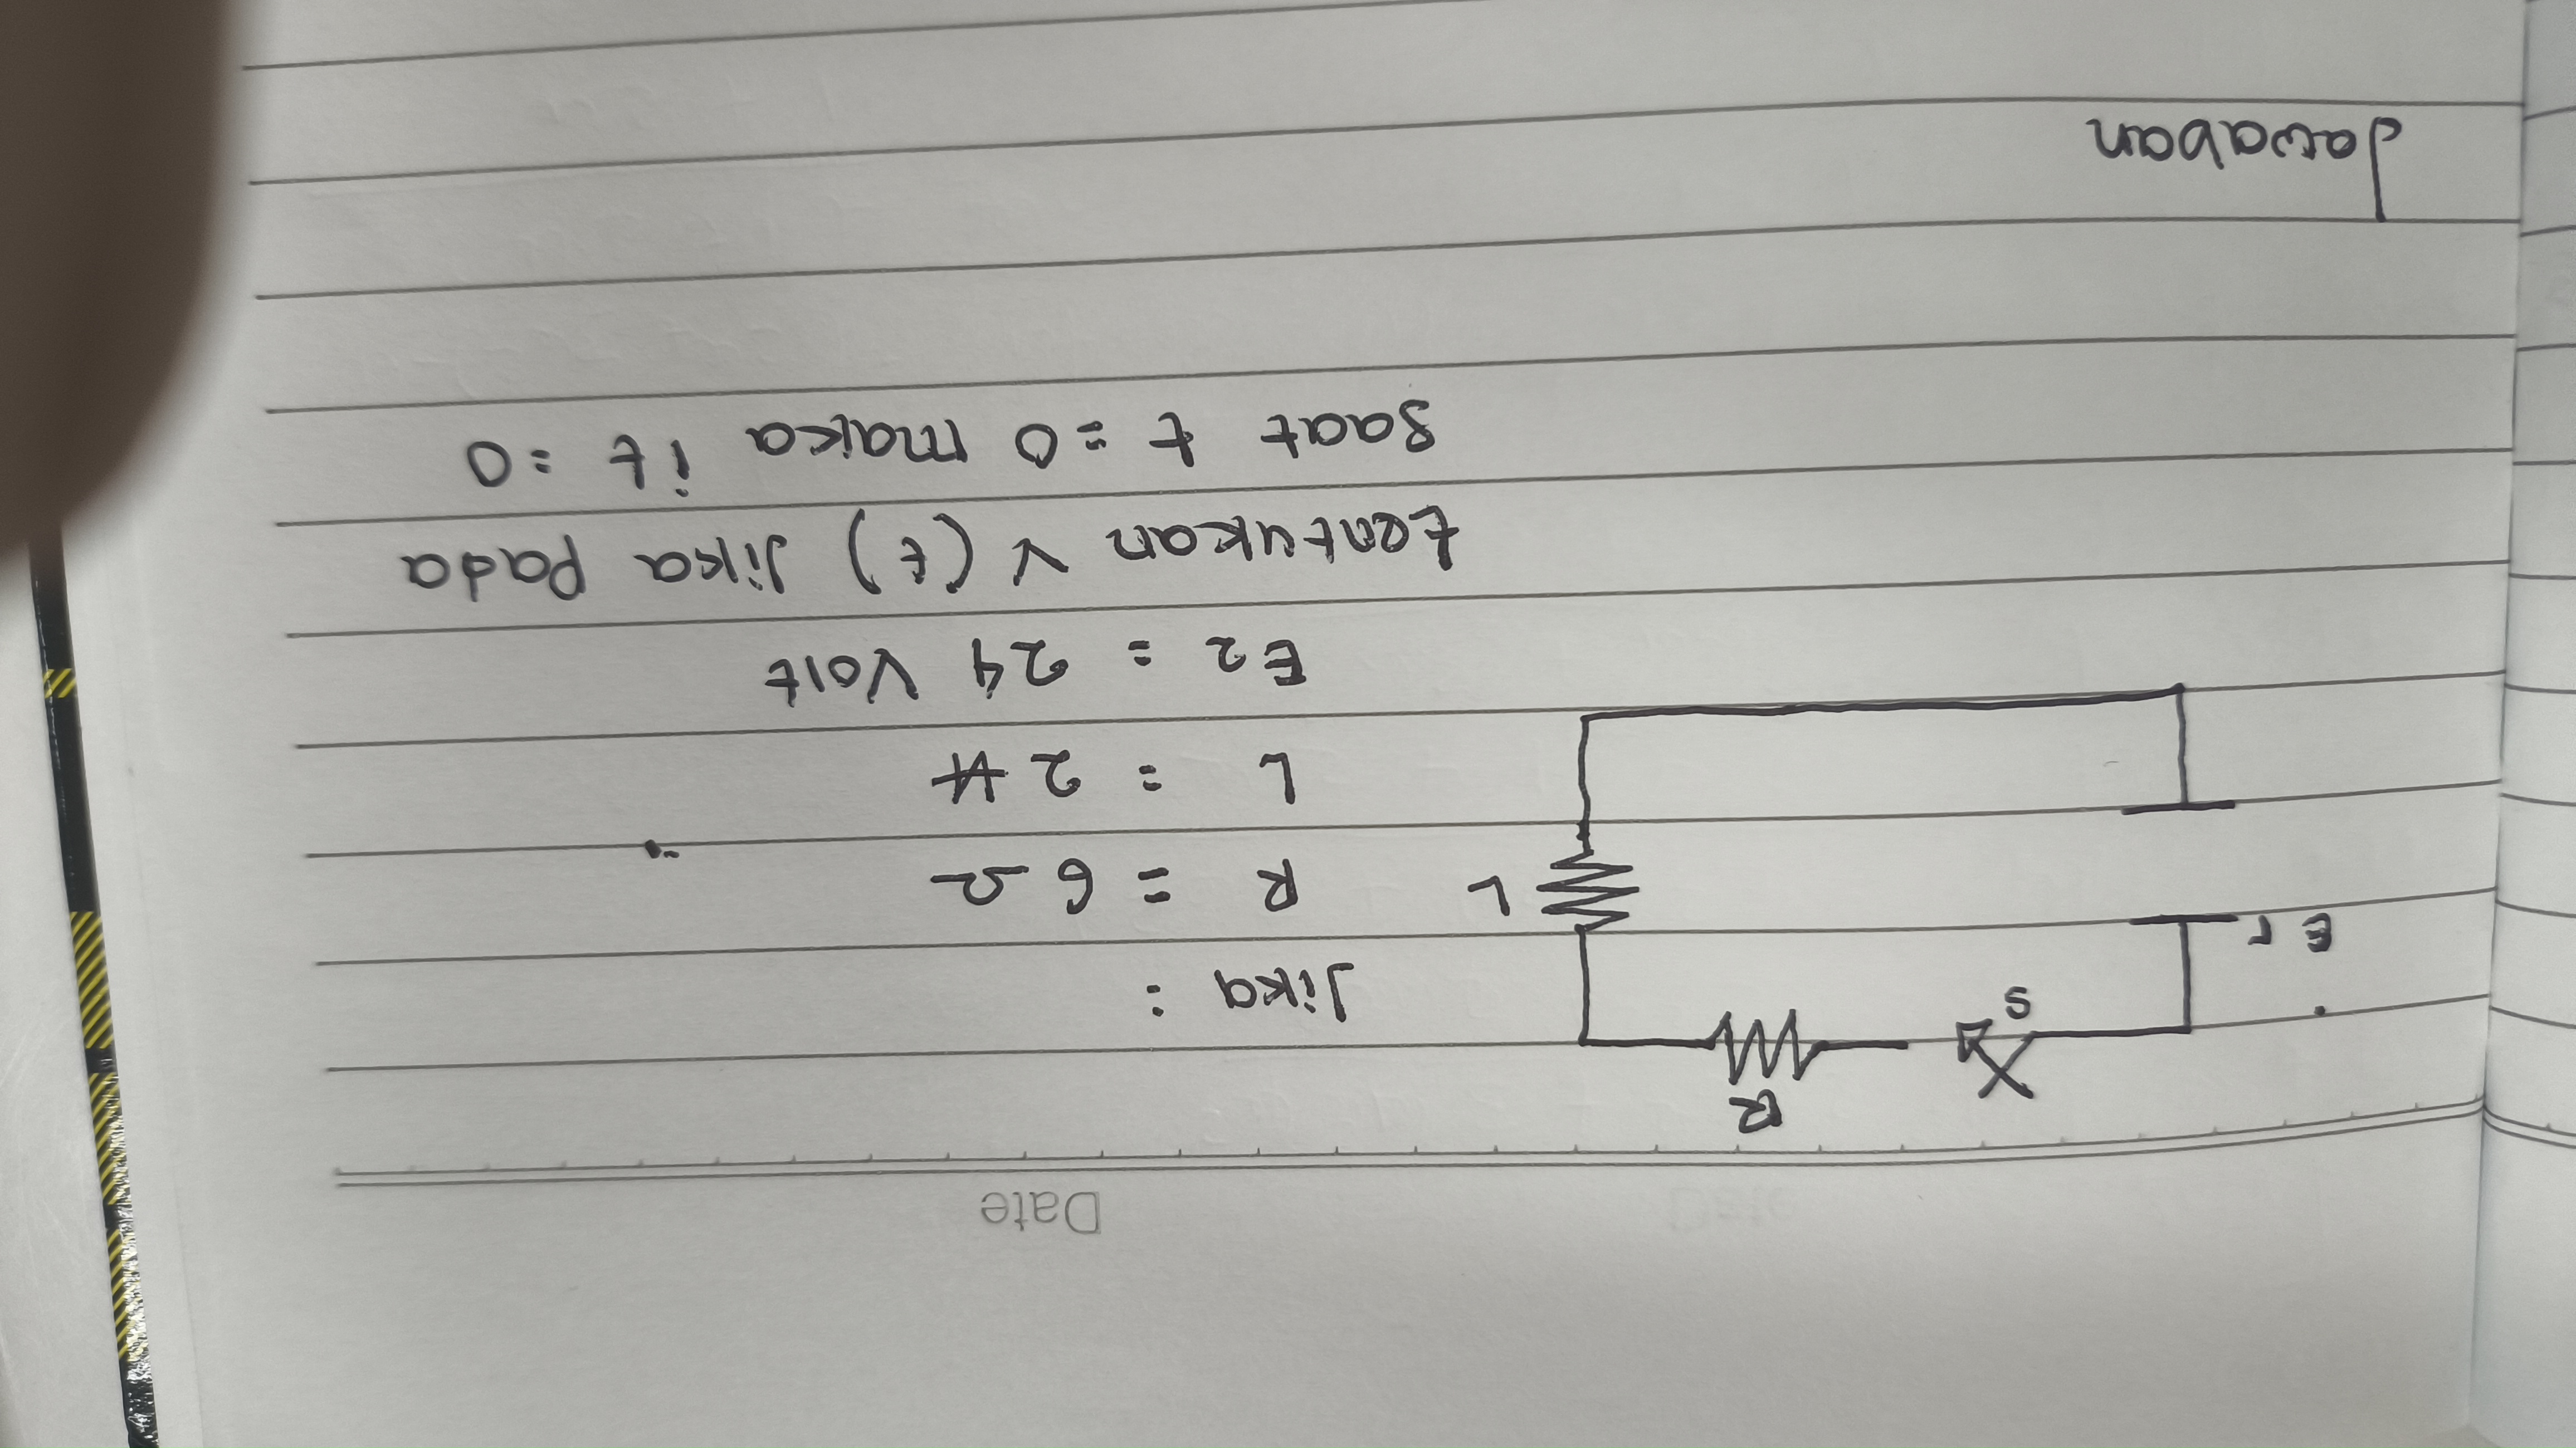 Date
R
S
Jika :
E r
L
R = 6 Ω
L = 2 H
E2 = 24 Volt
tentukan v (t) Jika Pada
Saat t = 0 maka it = 0
Jawaban